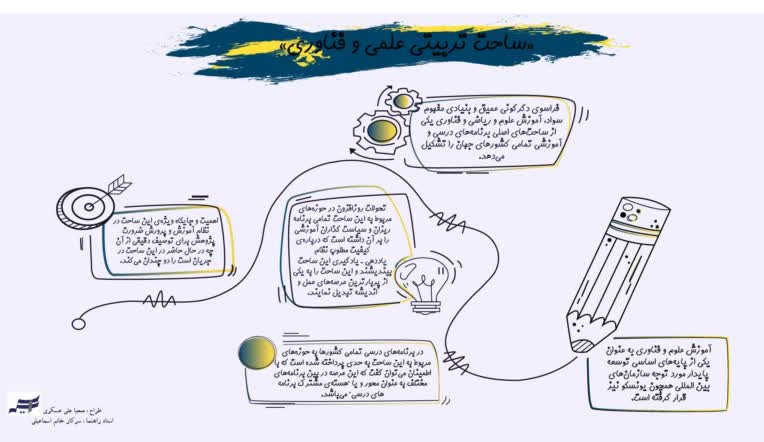 «ساحت تربیتی علمی و فناوری»
فراسوی دگرگونی عمیق و بنیادی مفهوم
سواد، آموزش علوم و ریاضی و فناوری یکی
از ساحت‌های اصلی برنامه‌های درسی و
آموزشی تمامی کشورهای جهان را تشکیل
می‌دهد.
تحولات روزافزون در حوزه‌های
مربوط به این ساحت تمامی برنامه
ریزان و سیاست گذاران آموزشی
را بر آن داشته است که درباره‌ی
کیفیت مطلوب نظام
یاددهی - یادگیری این ساحت
بیندیشند و این ساحت را به یکی
از پربارترین عرصه‌های عمل و
اندیشه تبدیل نمایند.
اهمیت و جایگاه ویژه‌ی این ساحت در
نظام آموزش و پرورش ضرورت
پژوهش برای توصیف دقیقی از آن
چه در حال حاضر در این ساحت در
جریان است را دو چندان می‌کند.
آموزش علوم و فناوری به عنوان
یکی از پایه‌های اساسی توسعه
پایدار مورد توجه سازمان‌های
بین المللی همچون یونسکو نیز
قرار گرفته است.
در برنامه‌های درسی تمامی کشورها به حوزه‌های
مربوط به این ساحت به حدی پرداخته شده است که با
اطمینان می‌توان گفت که این عرصه در بین برنامه‌های
مختلف به عنوان محور و یا هسته‌ی مشترک برنامه
های درسی می‌باشد.
طراح : محیا علی عسکری
استاد راهنما : سرکار خانم اسماعیلی